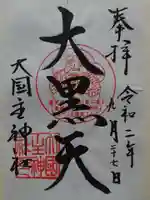 奉拝
令和二年
九月二十七日
大黒天
大国主神社